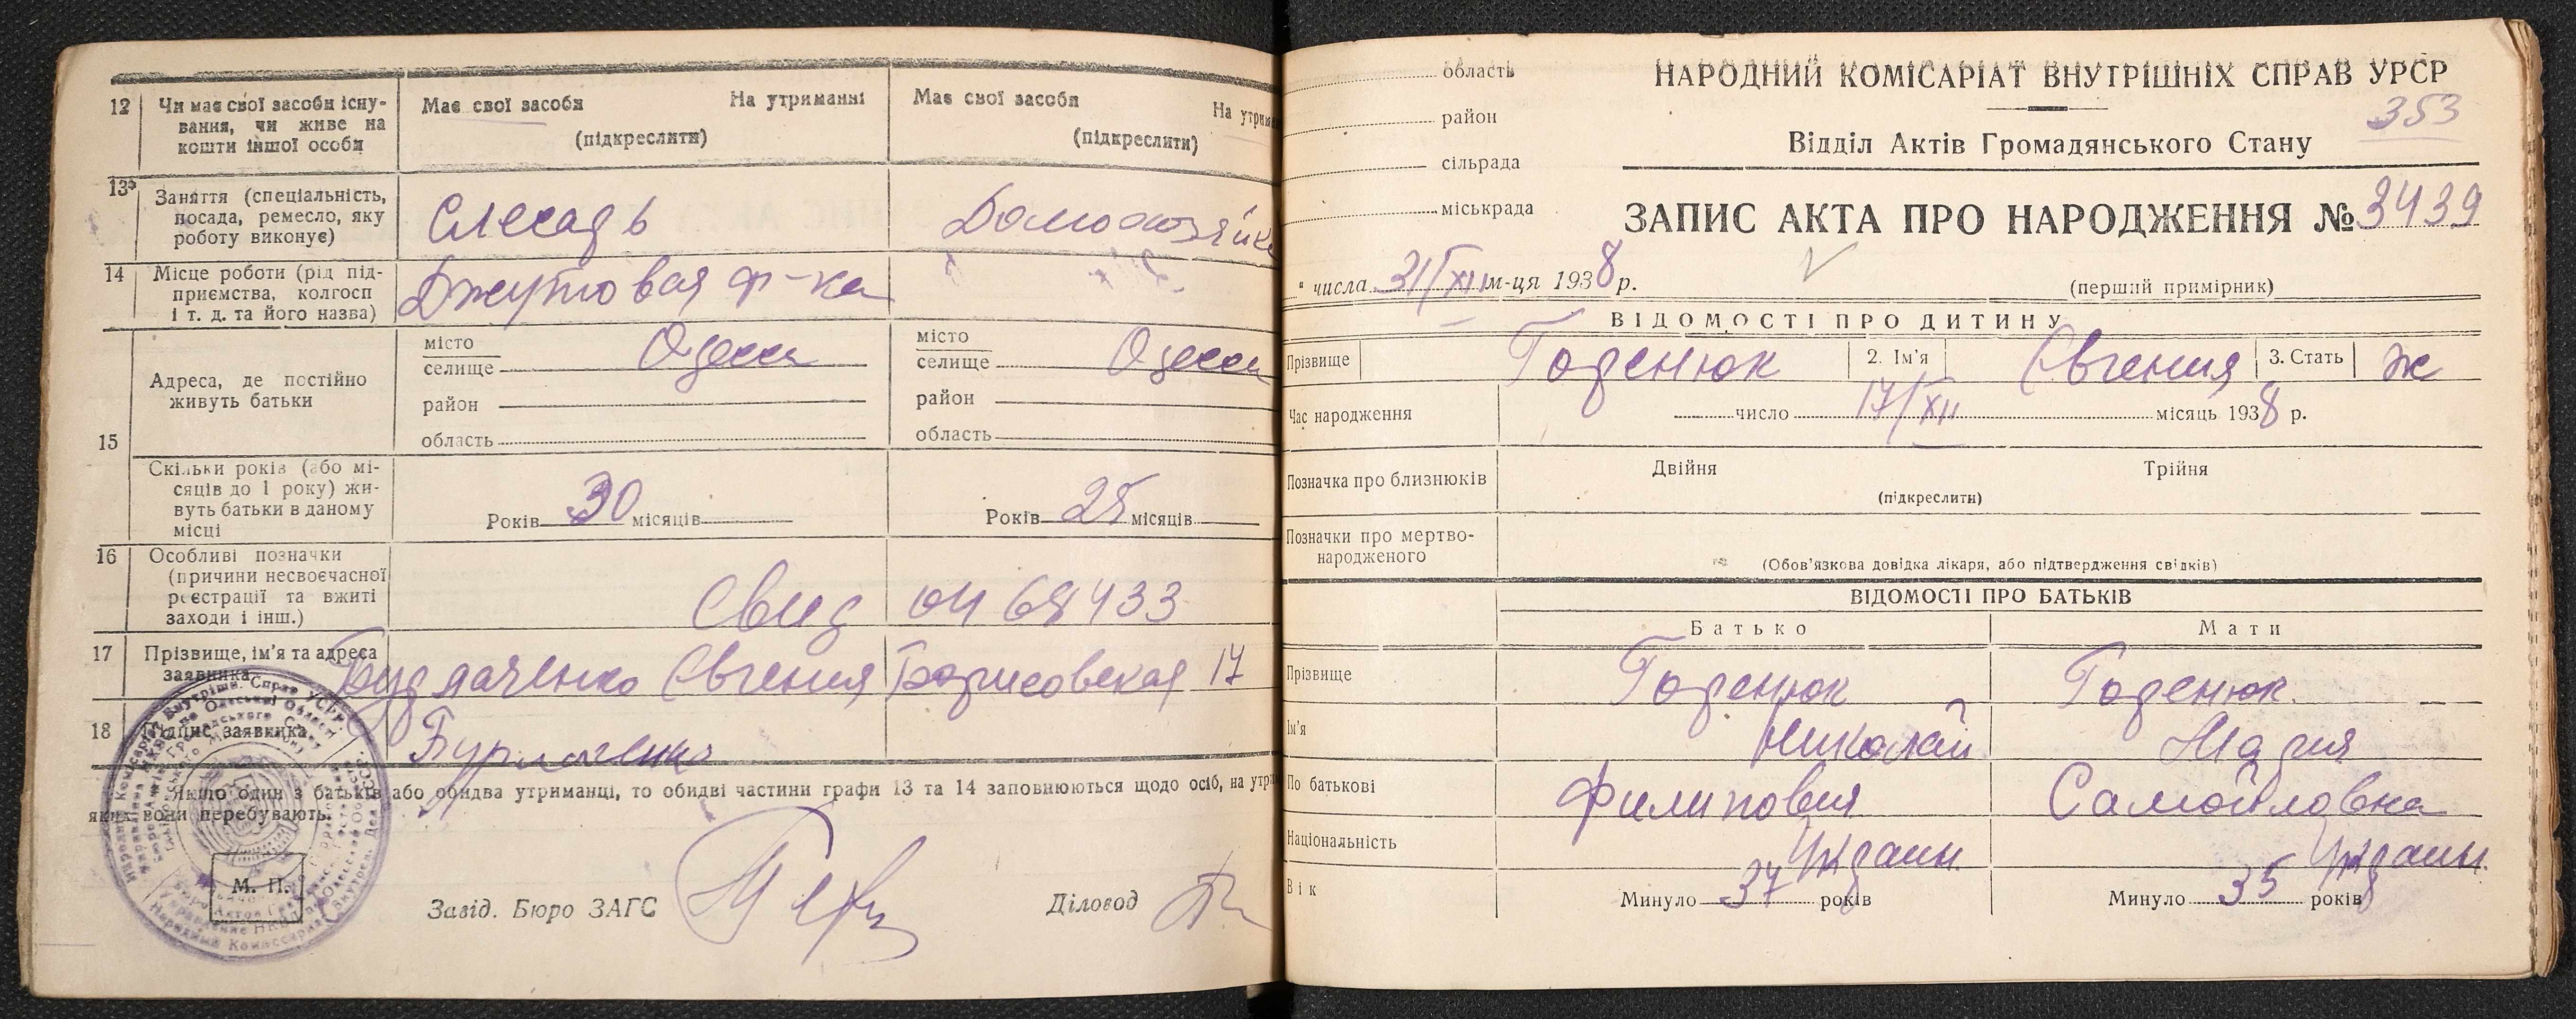 12 Чи має свої засоби існу-
вання, чи живе на
кошти іншої особи
Має свої засоби На утриманні
(підкреслити)
Має свої засоби На утрим
(підкреслити)
13 Заняття (спеціальність,
посада, ремесло, яку
роботу виконує)
Слесарь
Домохозяйка
14 Місце роботи (рід під-
приємства, колгосп
і т. д. та його назва)
Джутовая ф-ка
15 Адреса, де постійно
живуть батьки
місто
селище Одесса
район
область
місто
селище Одесса
район
область
Скільки років (або мі-
сяців до 1 року) жи-
вуть батьки в даному
місці
Років 30 місяців
Років 25 місяців
16 Особливі позначки
(причини несвоєчасної
реєстрації та вжиті
заходи і інш.)
Свид
17 Прізвище, ім'я та адреса
заявника
Бурлаченко Евгения Борисовская 17
18 Підпис заявника
Бурлаченко
Якщо один з батьків або обидва утриманці, то обидві частини графи 13 та 14 заповнюються щодо осіб, на утри
яких вони перебувають.
М. П.
Завід. Бюро ЗАГС
Діловод
область
район
сільрада
міськрада
НАРОДНИЙ КОМІСАРІАТ ВНУТРІШНІХ СПРАВ УРСР
353
Відділ Актів Громадянського Стану
ЗАПИС АКТА ПРО НАРОДЖЕННЯ № 3439
" числа 31/XII м-ця 1938 р.
(перший примірник)
ВІДОМОСТІ ПРО ДИТИНУ
Прізвище Горенюк 2. Ім'я Евгения 3. Стать ж
Час народження число 17/XII місяць 1938 р.
Позначка про близнюків
Двійня Трійня
(підкреслити)
Позначки про мертво-
народженого
(Обов'язкова довідка лікаря, або підтвердження свідків)
ВІДОМОСТІ ПРО БАТЬКІВ
Батько Мати
Прізвище Горенюк Горенюк
Ім'я Николай Мария
По батькові Филипович Самойловна
Національність Украин. Украин.
Вік Минуло 37 років Минуло 35 років